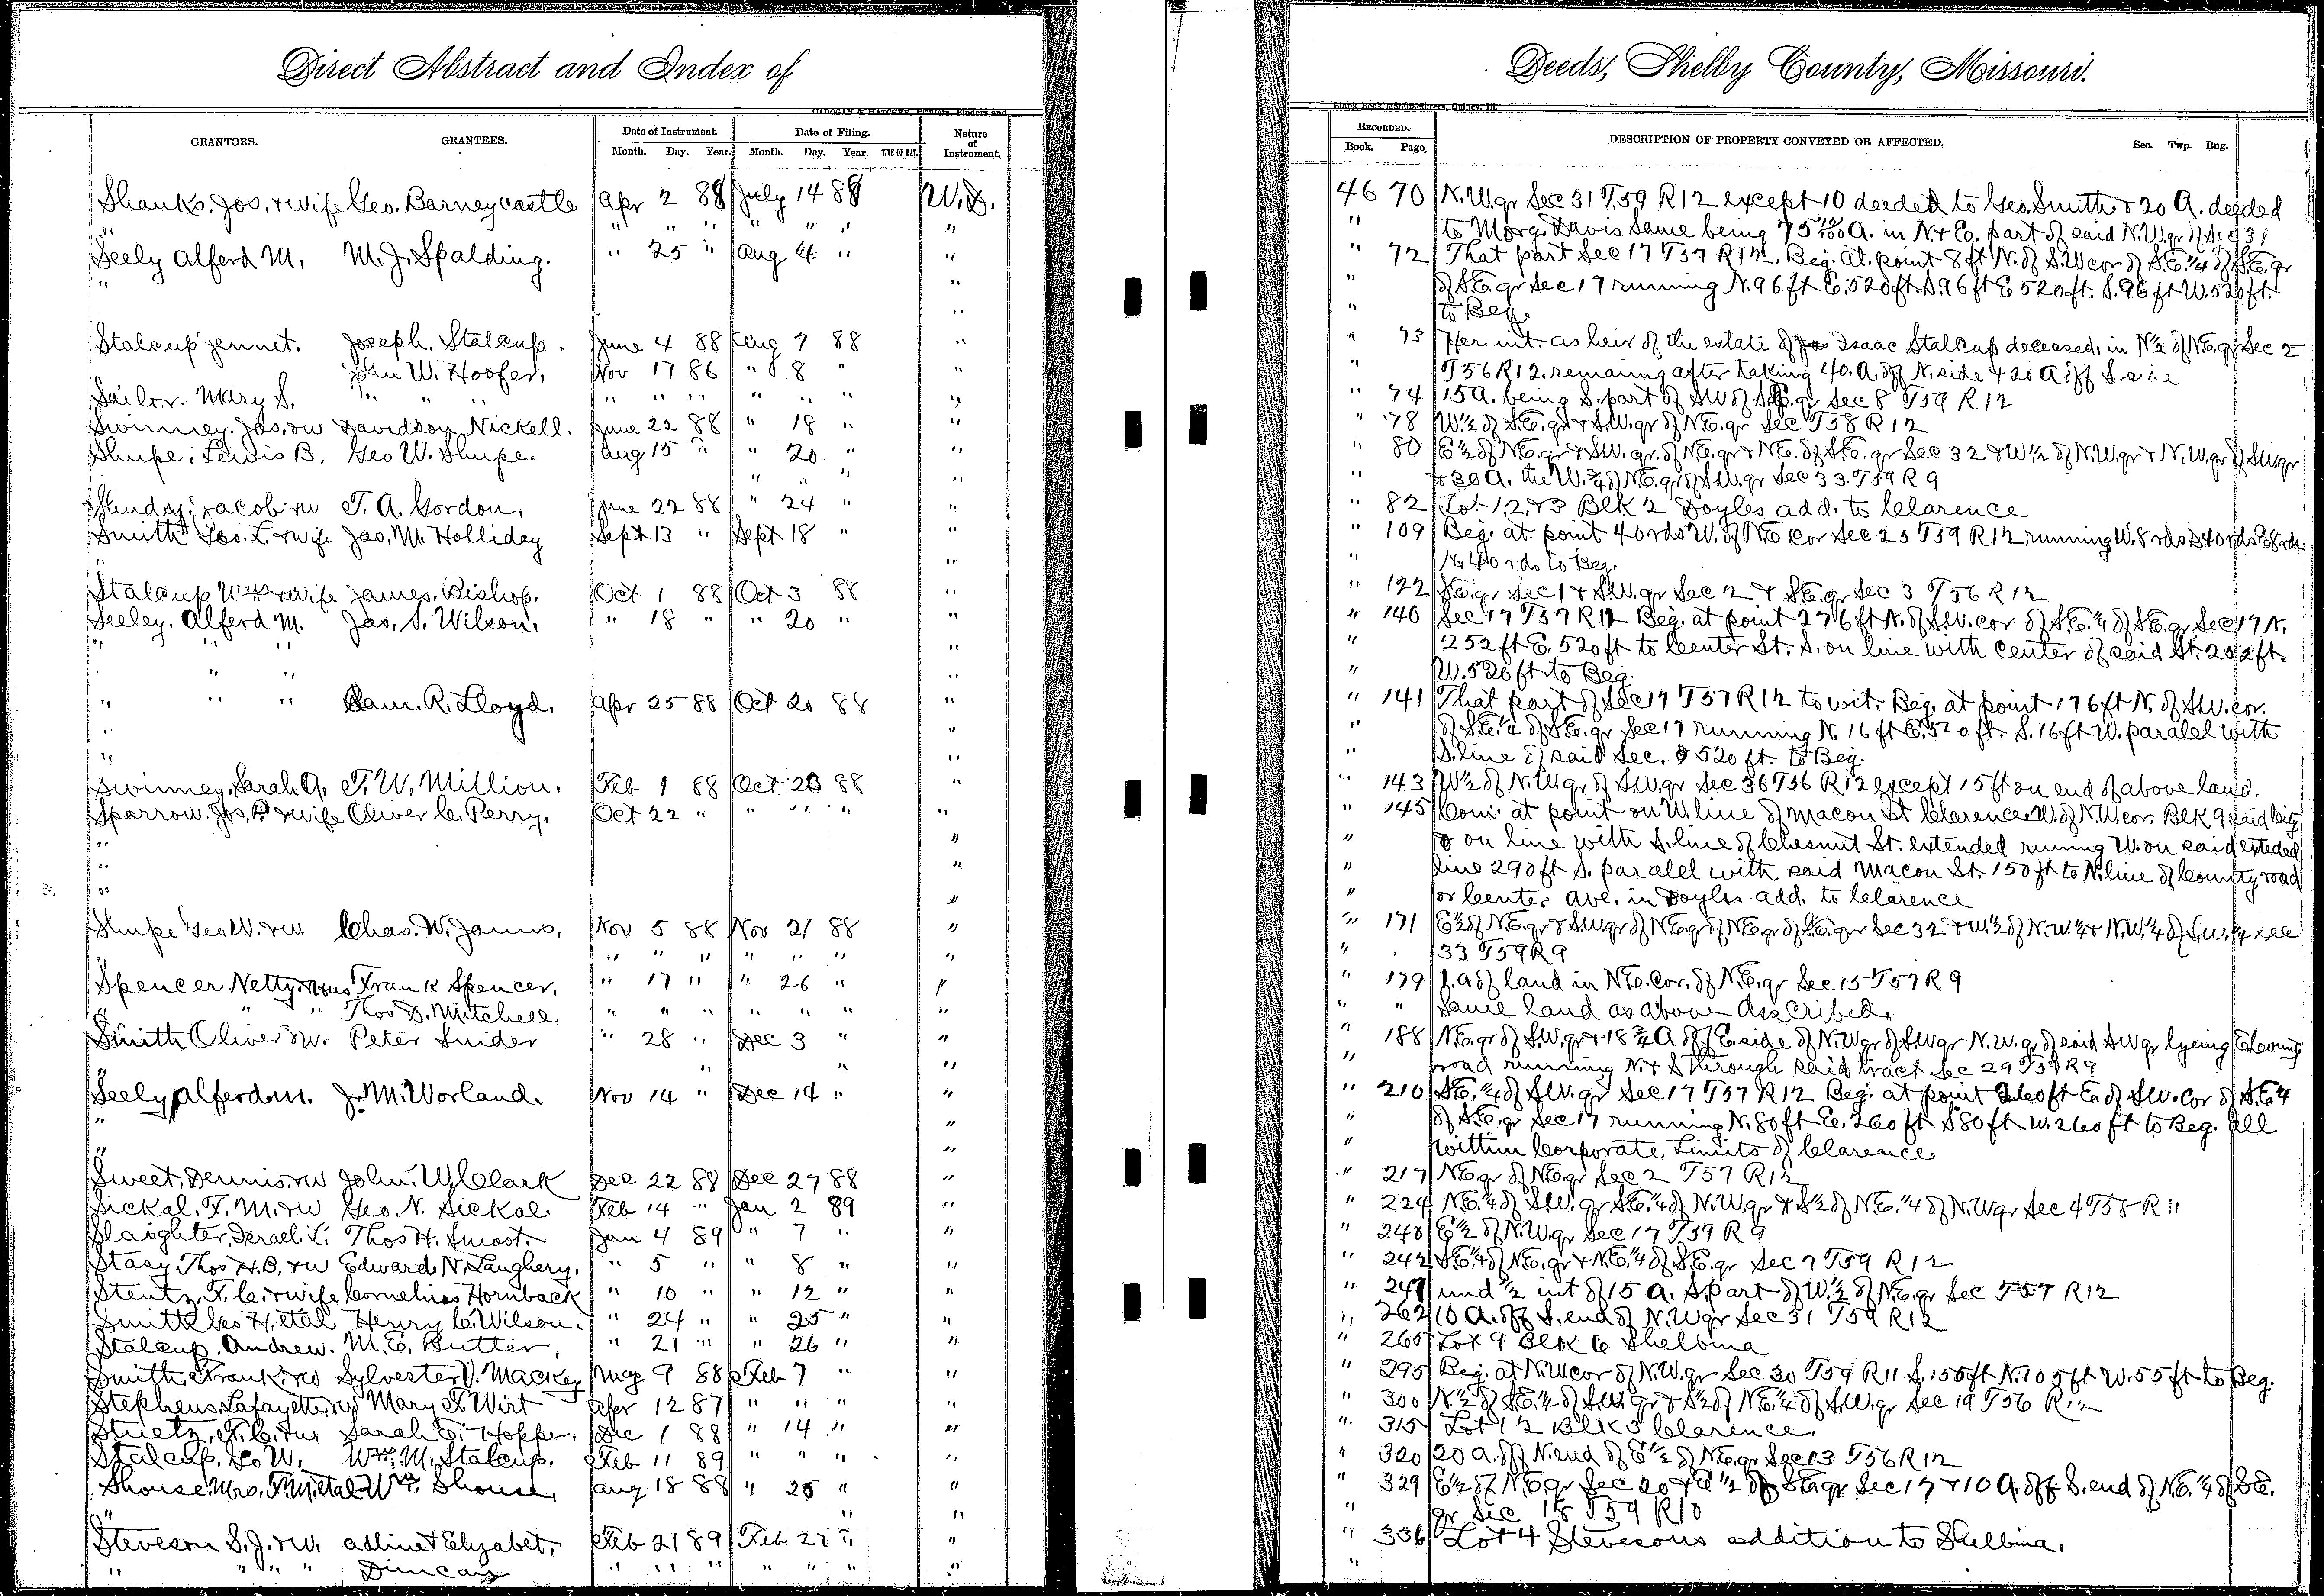 Direct Abstract and Index of
Deeds, Shelby County, Missouri.
CADOGAN & HATCHER, Printers, Binders and
Blank Book Manufacturers, Quincy, Ill.
GRANTORS. GRANTEES. Date of Instrument. Date of Filing. Nature of Instrument.
Month. Day. Year. Month. Day. Year. TIME OF DAY.
RECORDED. DESCRIPTION OF PROPERTY CONVEYED OR AFFECTED. Sec. Twp. Rng.
Book. Page,
Shanks. Jos. & wife Geo. Barneycastle Apr 2 88 July 14 88 W.D. 46 70 N.W.qr Sec 31 T.59 R12 except 10 deeded to Geo. Smith & 20 A. deeded
" " " " " " " " to Morg. Davis same being 75 A. in N. & E. part of said N.W.qr of Sec 31
Seely Alferd M. M. J. Spalding. " 25 " Aug 4 " " " 72 That part Sec 17 T57 R12. Beg. at. point 8 ft N. of S.W cor of S.E. 1/4 of S.E. qr
" " " of S.E. qr Sec 17 running N. 96 ft E. 520 ft. S. 96 ft E 520 ft. S. 96 ft W. 520 ft.
" " to Beg.
Stalcup Jennet. Joseph. Stalcup. June 4 88 Aug 7 88 " " 73 Her int. as heir of the estate of Isaac Stalcup deceased, in N 1/2 of N.E. qr Sec 2
John W. Hoofer, Nov 17 86 " 8 " " " T56 R12. remaing after taking 40. A. off N. side & 20 A off S. side
Sailor. Mary S. " " " " " " " " " " " 74 15 A. being S. part of SW of S.E. qr Sec 8 T59 R12
Swinney. Jas. & w Davidson Nickell. June 22 88 " 18 " " " 78 W 1/2 of S.E. qr & S.W. qr of N.E. qr Sec T58 R12
Shupe, Lewis B. Geo W. Shupe. Aug 15 " " 20 " " " 80 E 1/2 of N.E. qr & S.W. qr. of N.E. qr & N.E. of S.E. qr Sec 32 & W 1/2 of N.W. qr & N.W. qr of SW qr
" " " " " & 30 A. the W. 3/4 of N.E. qr of S.W. qr Sec 33. T59 R9
Jacob & w T. A. Gordon, June 22 88 " 24 " " " 82 Lot 1, 2, & 3 Blk 2 Doyles add. to Clarence
Smith Geo. L. & wife Jas. M. Holliday Sept 13 " Sept 18 " " " 109 Beg. at point 40 rds W. of N.E cor Sec 25 T59 R12 running W. 8 rds S 40 rds E 8 rds
" " N. 40 rds to Beg.
Stalcup Wm & wife James. Bishop. Oct 1 88 Oct 3 88 " " 122 S.E. qr Sec 1 & S.W. qr Sec 2 & S.E. qr Sec 3 T56 R12
Seeley. Alferd M. Jas. S. Wilson, " 18 " " 20 " " " 140 Sec 17 T57 R12 Beg. at point 276 ft N. of S.W. cor of S.E. 1/4 of S.E. qr Sec 17 N.
" " " " " 252 ft E. 520 ft to Center St. S. on line with center of said St. 252 ft.
" " " " W. 520 ft to Beg.
" " " Sam. R. Lloyd. Apr 25 88 Oct 20 88 " " 141 That part of Sec 17 T57 R12 to wit. Beg. at point 176 ft N. of S.W. cor.
" " " of S.E. 1/4 of S.E. qr Sec 17 running N. 16 ft E. 520 ft. S. 16 ft W. paralel with
" " " S. line of said Sec. 520 ft. to Beg.
Swinney, Sarah A. T. W. Million. Feb 1 88 Oct 23 88 " " 143 W 1/2 of N.W. qr of S.W. qr Sec 36 T56 R12 except 15 ft on end of above land.
Sparrow. Jos. P & wife Oliver C. Perry. Oct 22 " " " " " " 145 Com. at point on W. line of Macon St Clarence W. of N.W. cor. Blk 9 said City
" " " on line with S. line of Chesnut St. extended runing W. on said exteded
" " " line 290 ft S. paralel with said Macon St. 150 ft to N. line of County road
" " " or Center Ave. in Doyles add. to Clarence
Shupe Geo W. & w. Chas. W. Janns. Nov 5 88 Nov 21 88 " " 171 E 1/2 of N.E. qr & S.W qr of N.E. qr of N.E. qr of S.E. qr Sec 32 & W. 1/2 of N.W. 1/4 & N.W. 1/4 of S.W. 1/4 sec
" " " " " " " " " 33 T59 R9
Spencer Netty & hus Frank Spencer. " 17 " " 26 " " " 179 1. A of land in N.E. Cor. of N.E. qr Sec 15 T57 R9
" " " Thos D. Mitchell " " " " " " " " " Same land as above described.
Smith Oliver & w. Peter Snider " 28 " Dec 3 " " " 188 N.E. qr of S.W. qr & 18 3/4 A off E. side of N.W qr of S.W qr N.W. qr of said S.W qr lyeing E of County
" " " " " road running N. & S through said tract Sec 29 T59 R9
Seely Alferd M. J. M. Worland. Nov 14 " Dec 14 " " " 210 S.E. 1/4 of S.W. qr Sec 17 T57 R12 Beg. at point 260 ft E. of S.W. Cor of S.E. 1/4
" " " of S.E. qr Sec 17 running N. 80 ft E. 260 ft S 80 ft W. 260 ft to Beg. all
" " " within Corporate Limits of Clarence
Sweet, Dennis & w John. W. Clark Dec 22 88 Dec 27 88 " " 217 N.E. qr of N.E. qr Sec 2 T57 R12
Sickal. F. M. & w Geo. N. Sickal Feb 14 " Jan 2 89 " " 224 N.E. 1/4 of S.W. qr S.E. 1/4 of N.W. qr & S 1/2 of N.E. 1/4 of N.W qr Sec 4 T58 R11
Slaighter, Israel L. Thos H. Smoot. Jan 4 89 " 7 " " " 240 E 1/2 of N.W. qr Sec 17 T59 R9
Stasy, Thos H. B. & w Edward N. Laughery. " 5 " " 8 " " " 242 S.E. 1/4 of N.E. qr & N.E. 1/4 of S.E. qr Sec 7 T59 R12
Stentz, F. C. & wife Cornelius Hornback " 10 " " 12 " " " 247 und 1/2 int of 15 A. S part of W. 1/2 of N.E. qr Sec 5 57 R12
Smith Geo H. etal Henry C. Wilson. " 24 " " 25 " " " 262 10 A. off S. end of N.W qr Sec 31 T59 R12
Stalcup, Andrew. M. E. Rutter, " 21 " " 26 " " " 265 Lot 9 Blk 6 Shelbina
Smith, Frank & w Sylvester V. Mackey May 9 88 Feb 7 " " " 295 Beg. at N.W cor of N.W. qr Sec 30 T59 R11 S. 155 ft N. 105 ft W. 55 ft to Beg.
Stephens, Lafayette & w Mary F. Wirt Apr 12 87 " " " " " 300 N. 1/2 of S.E. 1/4 of S.W. qr & S 1/2 of N.E. 1/4 of S.W. qr Sec 19 T56 R12
F. C. & w. Sarah E. Hopper, Dec 1 88 " 14 " " " 315 Lot 12 Blk 3 Clarence,
Stalcup, Geo W. Wm. M. Stalcup. Feb 11 89 " " " " " 320 20 A. off N. end of E 1/2 of N.E. qr Sec 13 T56 R12
Shouse, Mrs. F. M. etal Wm. Shouse, Aug 18 88 " 25 " " " 329 E 1/2 of N.E. qr Sec 20 & E 1/2 of S.E. qr Sec 17 & 10 A. off S. end of N.E. 1/4 of S.E.
" " " qr Sec 18 T59 R10
Steveson S. J. & w. Adline & Elyzabet, Feb 21 89 Feb 27 " " " 336 Lot 4 Stevesons addition to Shelbina,
" " " " Duncan " " " " " " " "